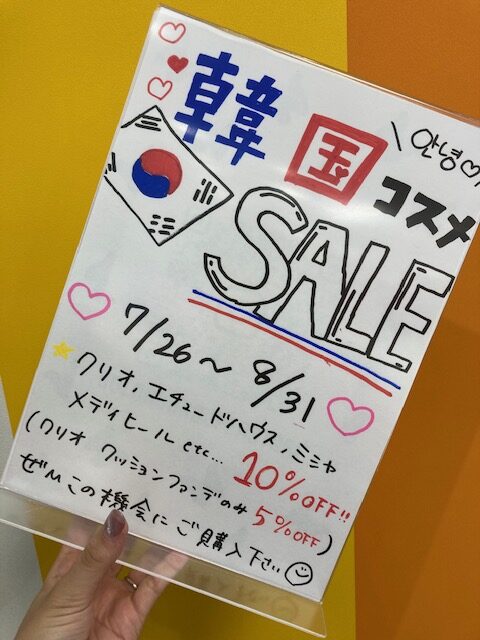 韓国コスメ
안녕♡
SALE
7/26〜8/31
クリオ、エチュードハウス、ミシャ
メディヒール etc... 10%OFF!!
(クリオ クッションファンデのみ 5%OFF)
ぜひこの機会にご購入下さい